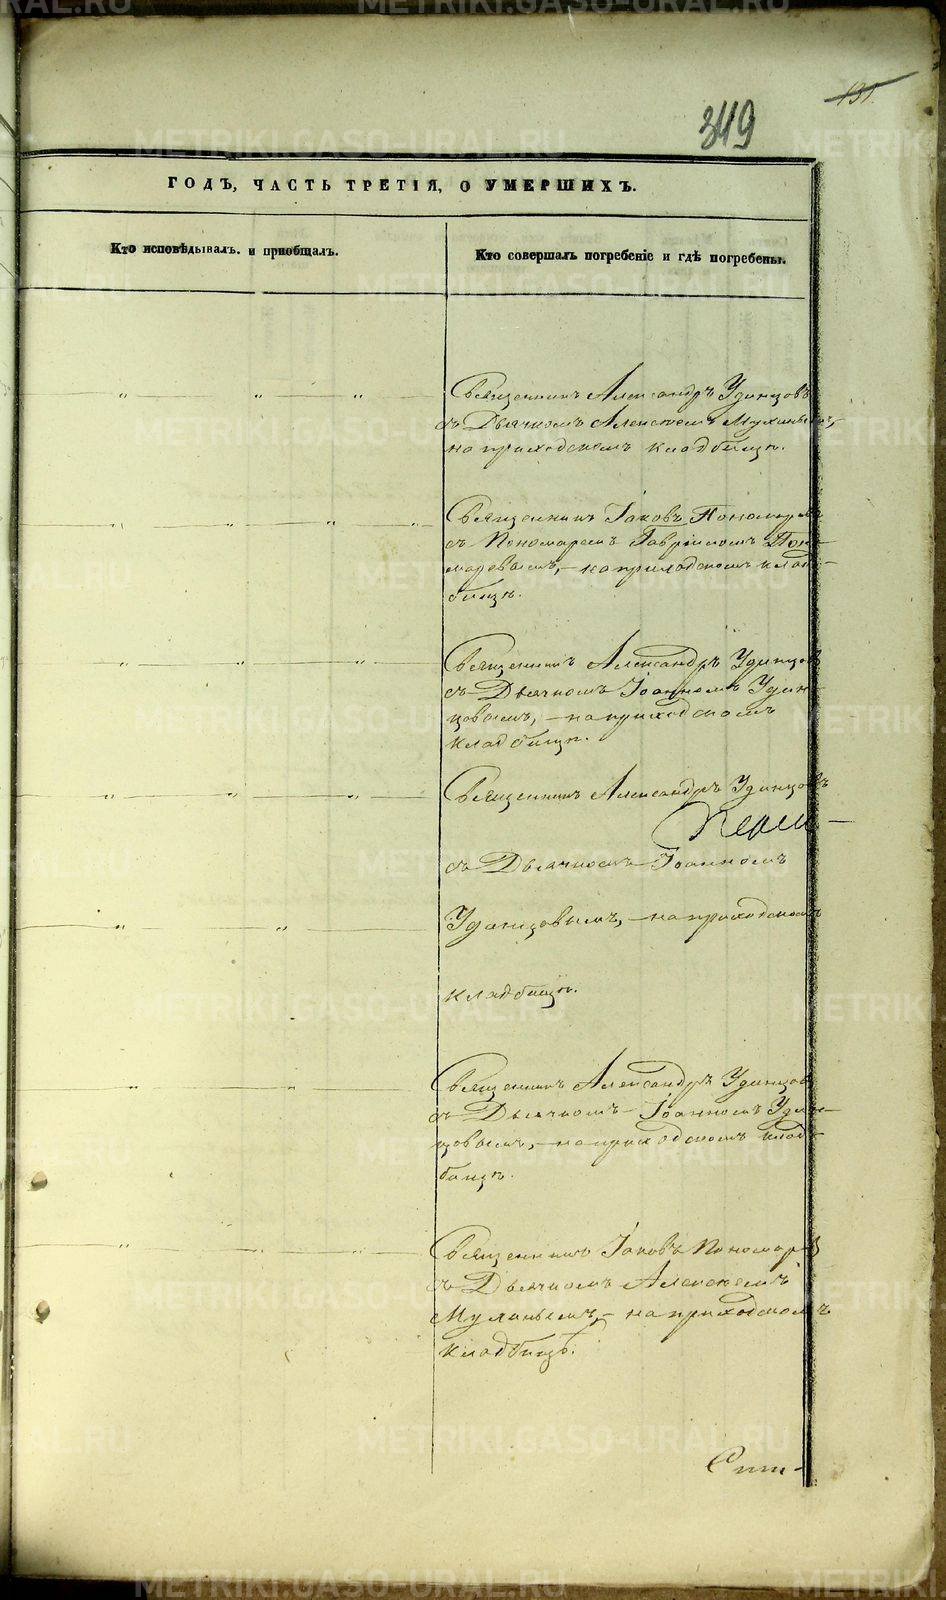 131.
349
ГОДЪ, ЧАСТЬ ТРЕТІЯ, О УМЕРШИХЪ.
Кто исповѣдывалъ и пріобщалъ.
Кто совершалъ погребеніе и гдѣ погребены.
Священникъ Александръ Удинцовъ
съ Дьячкомъ Алексѣемъ Мухинымъ,
на приходскомъ кладбищѣ.
Священникъ Іаковъ Пономаревъ
съ Пономаремъ Гавріиломъ Поно-
маревымъ, - на приходскомъ клад-
бищѣ.
Священникъ Александръ Удинцовъ
съ Дьячкомъ Іоанномъ Удин-
цовымъ, - на приходскомъ
кладбищѣ.
Священникъ Александръ Удинцовъ
съ Дьячкомъ Іоанномъ
Удинцовымъ, - на приходскомъ
кладбищѣ.
Священникъ Александръ Удинцовъ
съ Дьячкомъ Іоанномъ Удин-
цовымъ, - на приходскомъ клад-
бищѣ.
Священникъ Іаковъ Пономаревъ
съ Дьячкомъ Алексѣемъ
Мухинымъ, - на приходскомъ
кладбищѣ.
METRIKI.GASO-URAL.RU